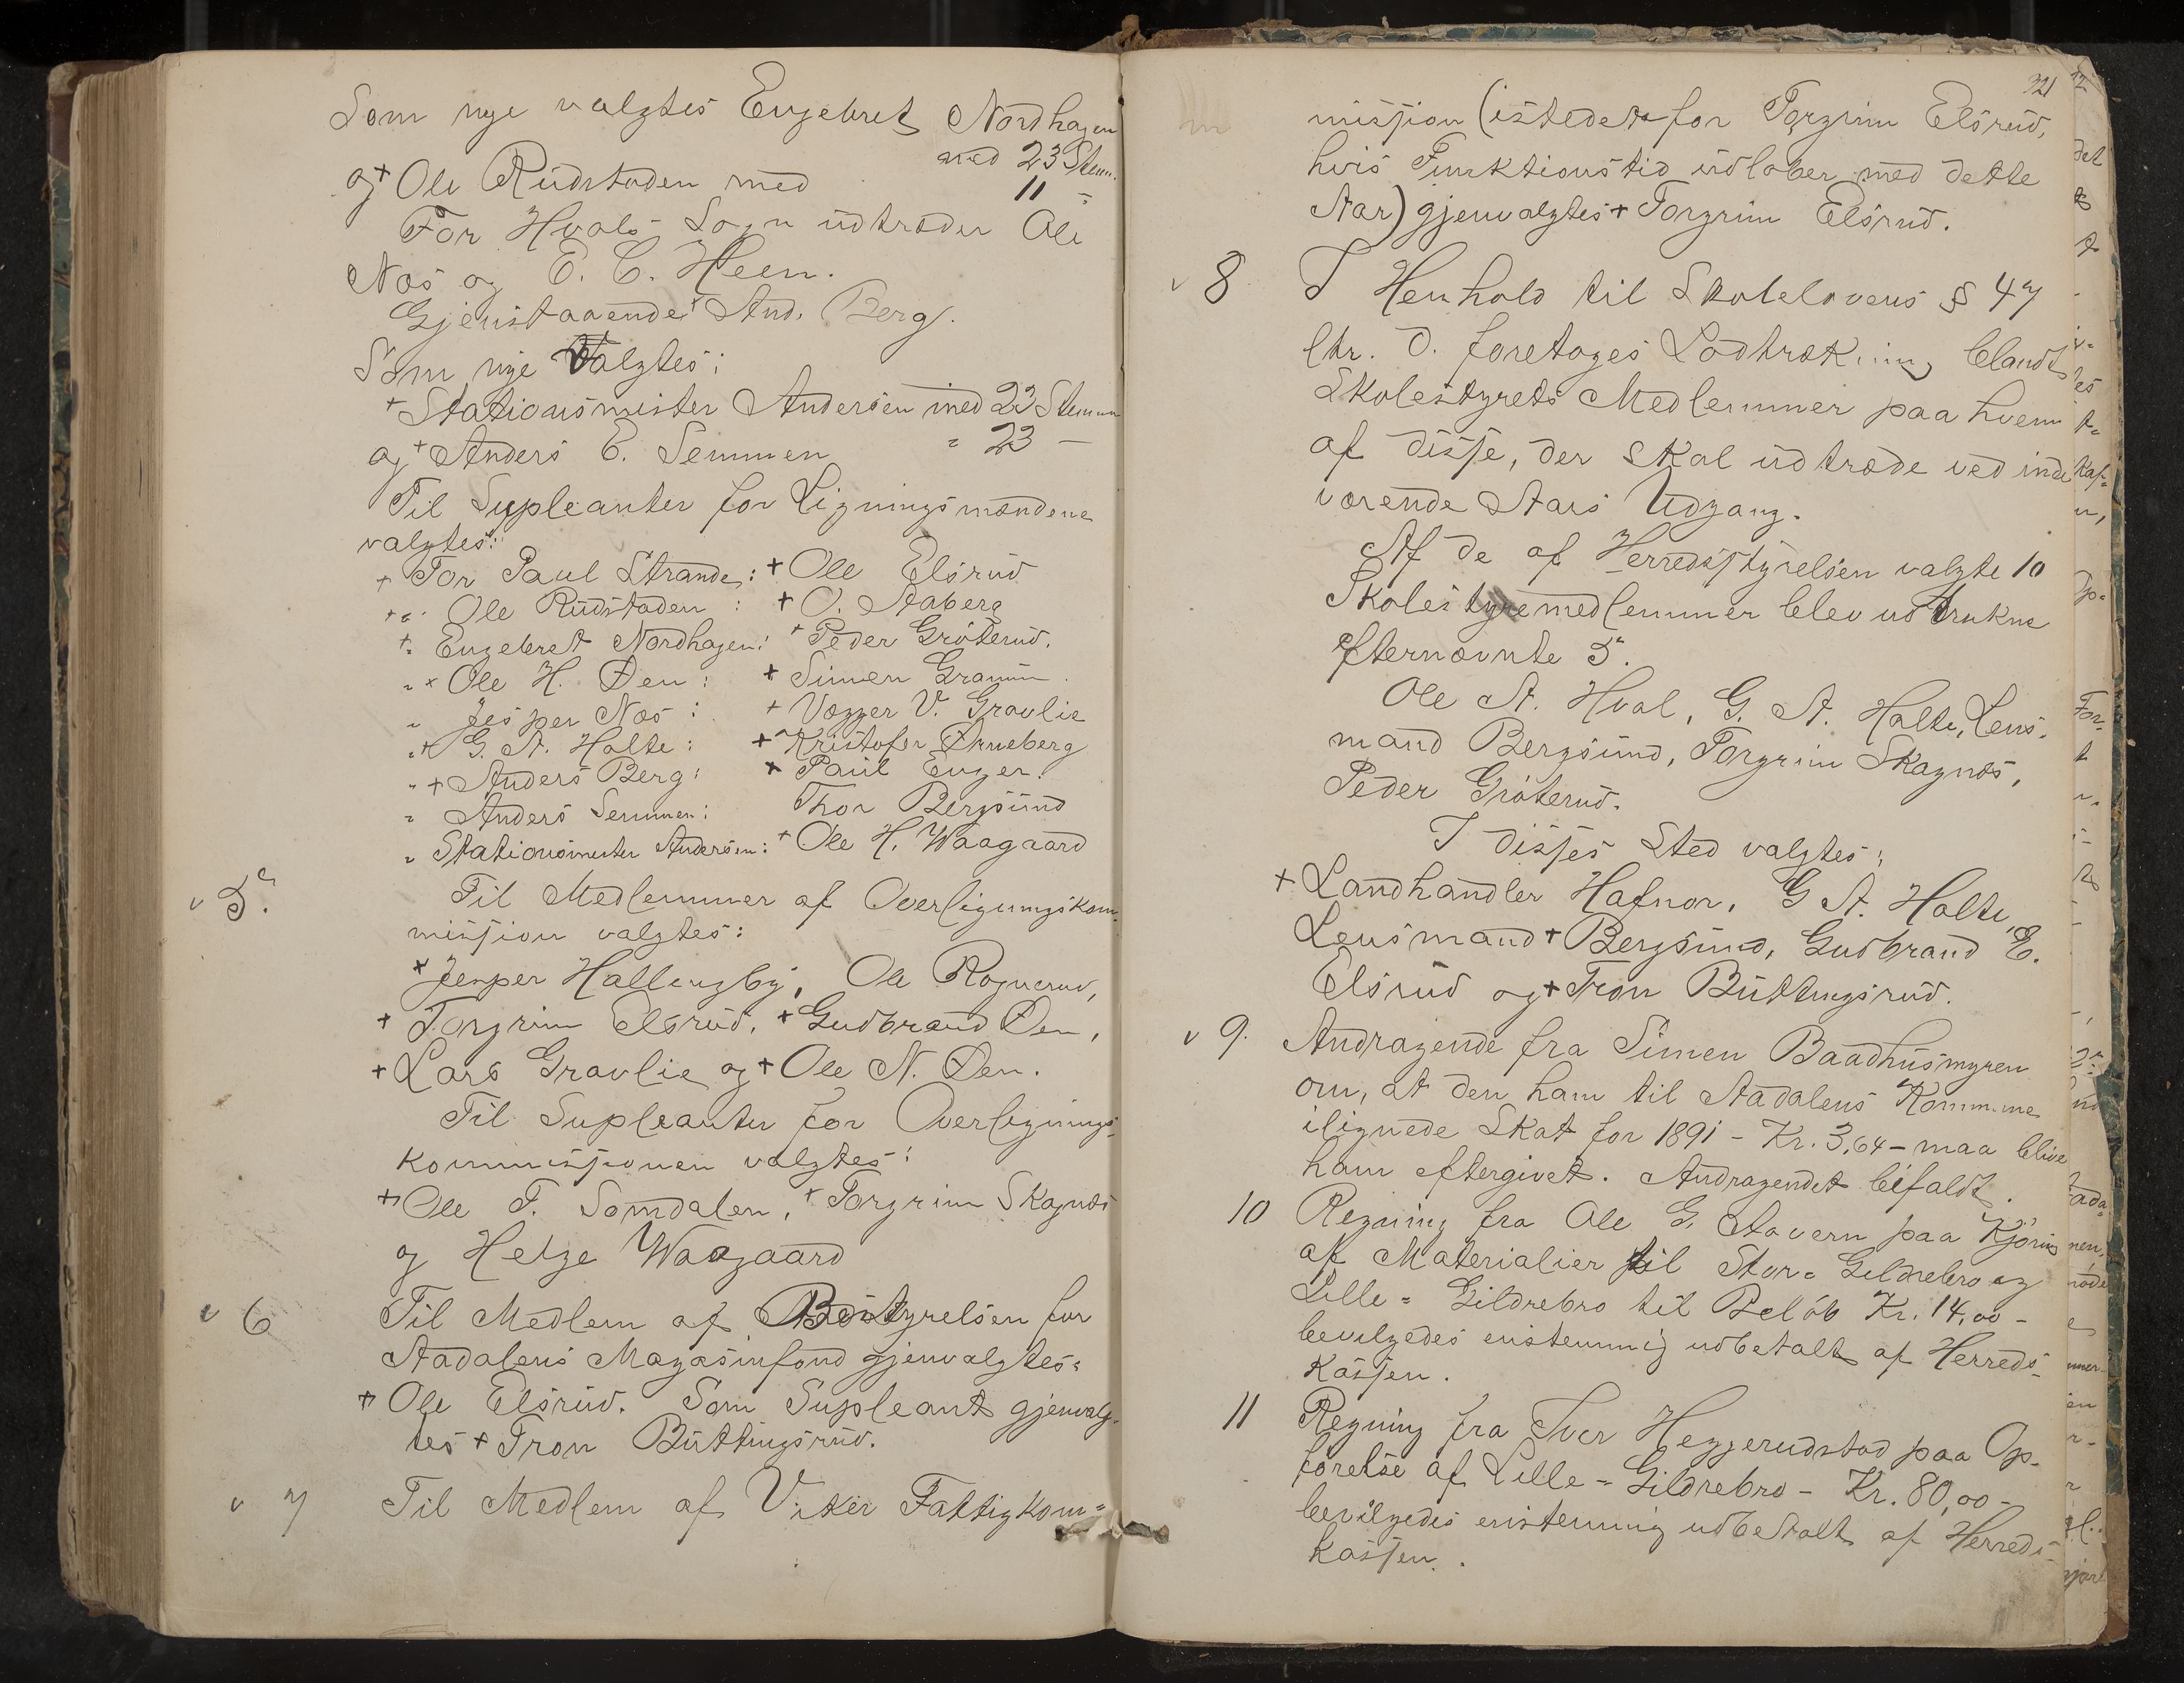 Som nye valgtes Engebret Nordhagen
med 23 Stem.
og + Ole Rudstaden med 11 "
For Hvals Sogn udtræder Ole
Næs og E. C. Heen.
Gjenstaaende And. Berg.
Som nye Valgtes:
+ Stationsmester Andersen med 23 Stemmer
og + Anders E. Semmen " 23 —
Til Supleanter for Ligningsmændene
valgtes:
+ For Paul Strande: + Ole Elsrud
+ " Ole Rudstaden : + O. Aaberg
+ " Engebret Nordhagen: + Peder Gróterud.
" + Ole H. Øen : + Simen Gramm.
" Jesper Næs : + Vegger V. Gravlie
" + G. A. Holte : + Kristofer Ønneberg
" + Anders Berg : + Paul Enger.
" Anders Semmen: Thor Bergsund
" Stationsmester Andersen: + Ole H. Waagaard
v 5. Til Medlemmer af Overligningskom-
mission valgtes:
+ Jesper Hallengby, Ole Rognerud,
+ Torgrim Elsrud, + Gudbrand Øen,
+ Lars Gravlie og + Ole N. Øen.
Til Supleanter for Overlignings-
kommissionen valgtes:
+ Ole T. Somdalen, + Torgrim Skagnæs
og Helge Waagaard
v 6 Til Medlem af Bestyrelsen for
Aadalens Magasinfond gjenvalgtes:
+ Ole Elsrud. Som Supleant gjenvalg-
tes + Tron Buttingsrud.
v 7 Til Medlem af Viker Fattigkom-
321
mission (istedet for Torgrim Elsrud,
hvis Funktionstid udløber med dette
Aar) gjenvalgtes + Torgrim Elsrud.
v 8 I Henhold til Skolelovens § 47
ltr. d. foretages Lodtrækning blandt
Skolestyrets Medlemmer paa hvem
af disse, der skal udtræde ved inde
værende Aars Udgang.
Af de af Herredsstyrelsen valgte 10
Skolestyremedlemmer blev udtrukne
efternævnte 5.
Ole A. Hval, G. A. Holte, Lens-
mand Bergsund, Torgrim Skagnæs,
Peder Gróterud.
I disses Sted valgtes:
+ Landhandler Hafnor, G A. Holte,
Lensmand + Bergsund, Gudbrand E.
Elsrud og + Tron Buttingsrud.
v 9. Andragende fra Simen Baadhusmyren
om, at den ham til Aadalens Kommune
ilignede Skat for 1891 - Kr. 3,64 - maa blive
ham eftergivet. Andragendet bifaldt.
10 Regning fra Ole G. Stavern paa Kjöring
af Materialier til Store Gildrebro og
Lille = Gildrebro til Belób Kr. 14,00 -
bevilgedes enstemmig udbetalt af Herreds-
kassen.
11 Regning fra Iver Heggerudstad paa Op-
førelse af Lille = Gildrebro - Kr. 80,00 -
bevilgedes enstemmig udbetalt af Herreds-
kassen.